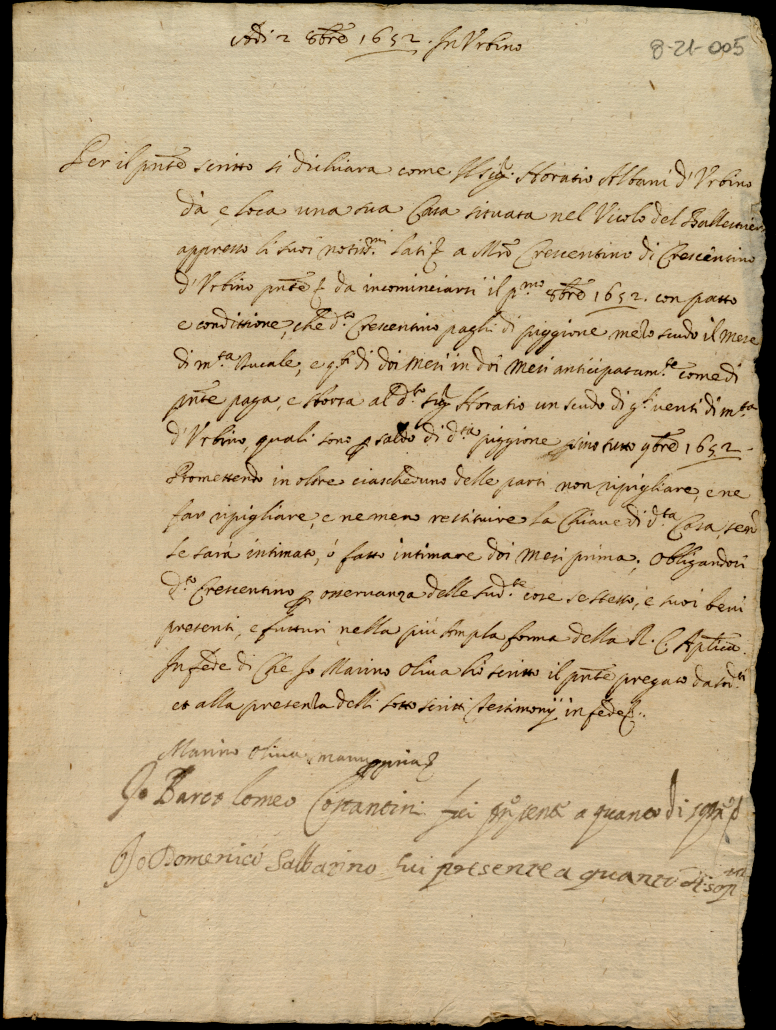 Adi 2 8bre 1652. In Urbino
8-21-005
Per il pnte scritto si dichiara come Il Sigr Horatio Albani d'Urbino
dà, e loca una sua Casa situata nel Vicolo del Ballestrier
appresso li suoi notissmi lati a Mro Crescentino di Crescentino
d'Urbino pnte da incominciarsi il pmo 8bre 1652. con patto
e conditione, che do Crescentino paghi di piggione mezo scudo il Mese
di mta Ducale, e qsti di doi Mesi in doi Mesi anticipatamte come di
pnte paga, e sborsa al dto Sigr Horatio un scudo di gli venti di mta
d'Urbino, quali sono p saldo di dta piggione p sino tutto 9bre 1652.
Promettendo in oltre ciascheduno delle parti non ripigliare, e ne
far ripigliare, e ne meno restituire la Chiave di dta Casa, se no
le sarà intimato, ò fatto intimare doi Mesi prima; Obligandosi
dto Crescentino p osservanza delle sudte cose se stesso, e suoi beni
presenti, e futturi nella più Ampla forma della R. C. Aplica.
In fede di Che Io Marino Oliva hò scritto il pnte pregato da sodti
et alla presenza delli sotto scritti Testimonij in fede
Marino Oliva manu ppria
Io Bartolomeo Costantini fui presente a quanto di sopra
Io Domenico Salbarino fui presente a quanto di sopra